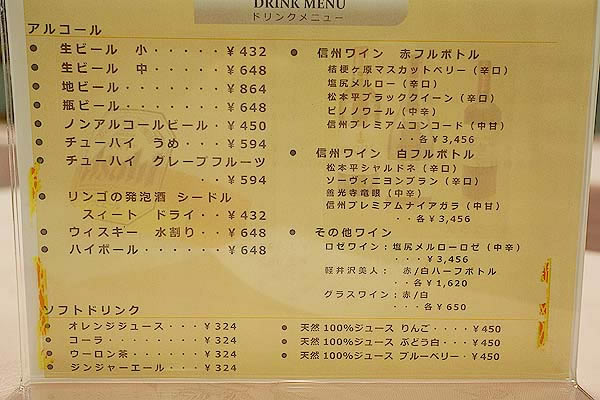 DRINK MENU
ドリンクメニュー
アルコール
● 生ビール 小・・・・・・¥432
● 生ビール 中・・・・・・¥648
● 地ビール・・・・・・・¥864
● 瓶ビール・・・・・・・¥648
● ノンアルコールビール・¥450
● チューハイ うめ・・・・¥594
● チューハイ グレープフルーツ
・・・・¥594
● リンゴの発泡酒 シードル
スィート ドライ・・・¥432
● ウィスキー 水割り・・¥648
● ハイボール・・・・・・¥648
● 信州ワイン 赤フルボトル
桔梗ヶ原マスカットベリー（辛口）
塩尻メルロー（辛口）
松本平ブラッククイーン（辛口）
ピノノワール（中辛）
信州プレミアムコンコード（中甘）
・・各¥3,456
● 信州ワイン 白フルボトル
松本平シャルドネ（辛口）
ソーヴィニヨンブラン（辛口）
善光寺竜眼（中辛）
信州プレミアムナイアガラ（中甘）
・・各¥3,456
● その他ワイン
ロゼワイン：塩尻メルローロゼ（中辛）
・・・¥3,456
軽井沢美人： 赤/白ハーフボトル
・・各¥1,620
グラスワイン：赤/白
・・・各¥650
ソフトドリンク
● オレンジジュース・・・・¥324
● コーラ・・・・・・・・・¥324
● ウーロン茶・・・・・・・¥324
● ジンジャーエール・・・・¥324
● 天然100%ジュース りんご・・・・¥450
● 天然100%ジュース ぶどう白・・・¥450
● 天然100%ジュース ブルーベリー・¥450